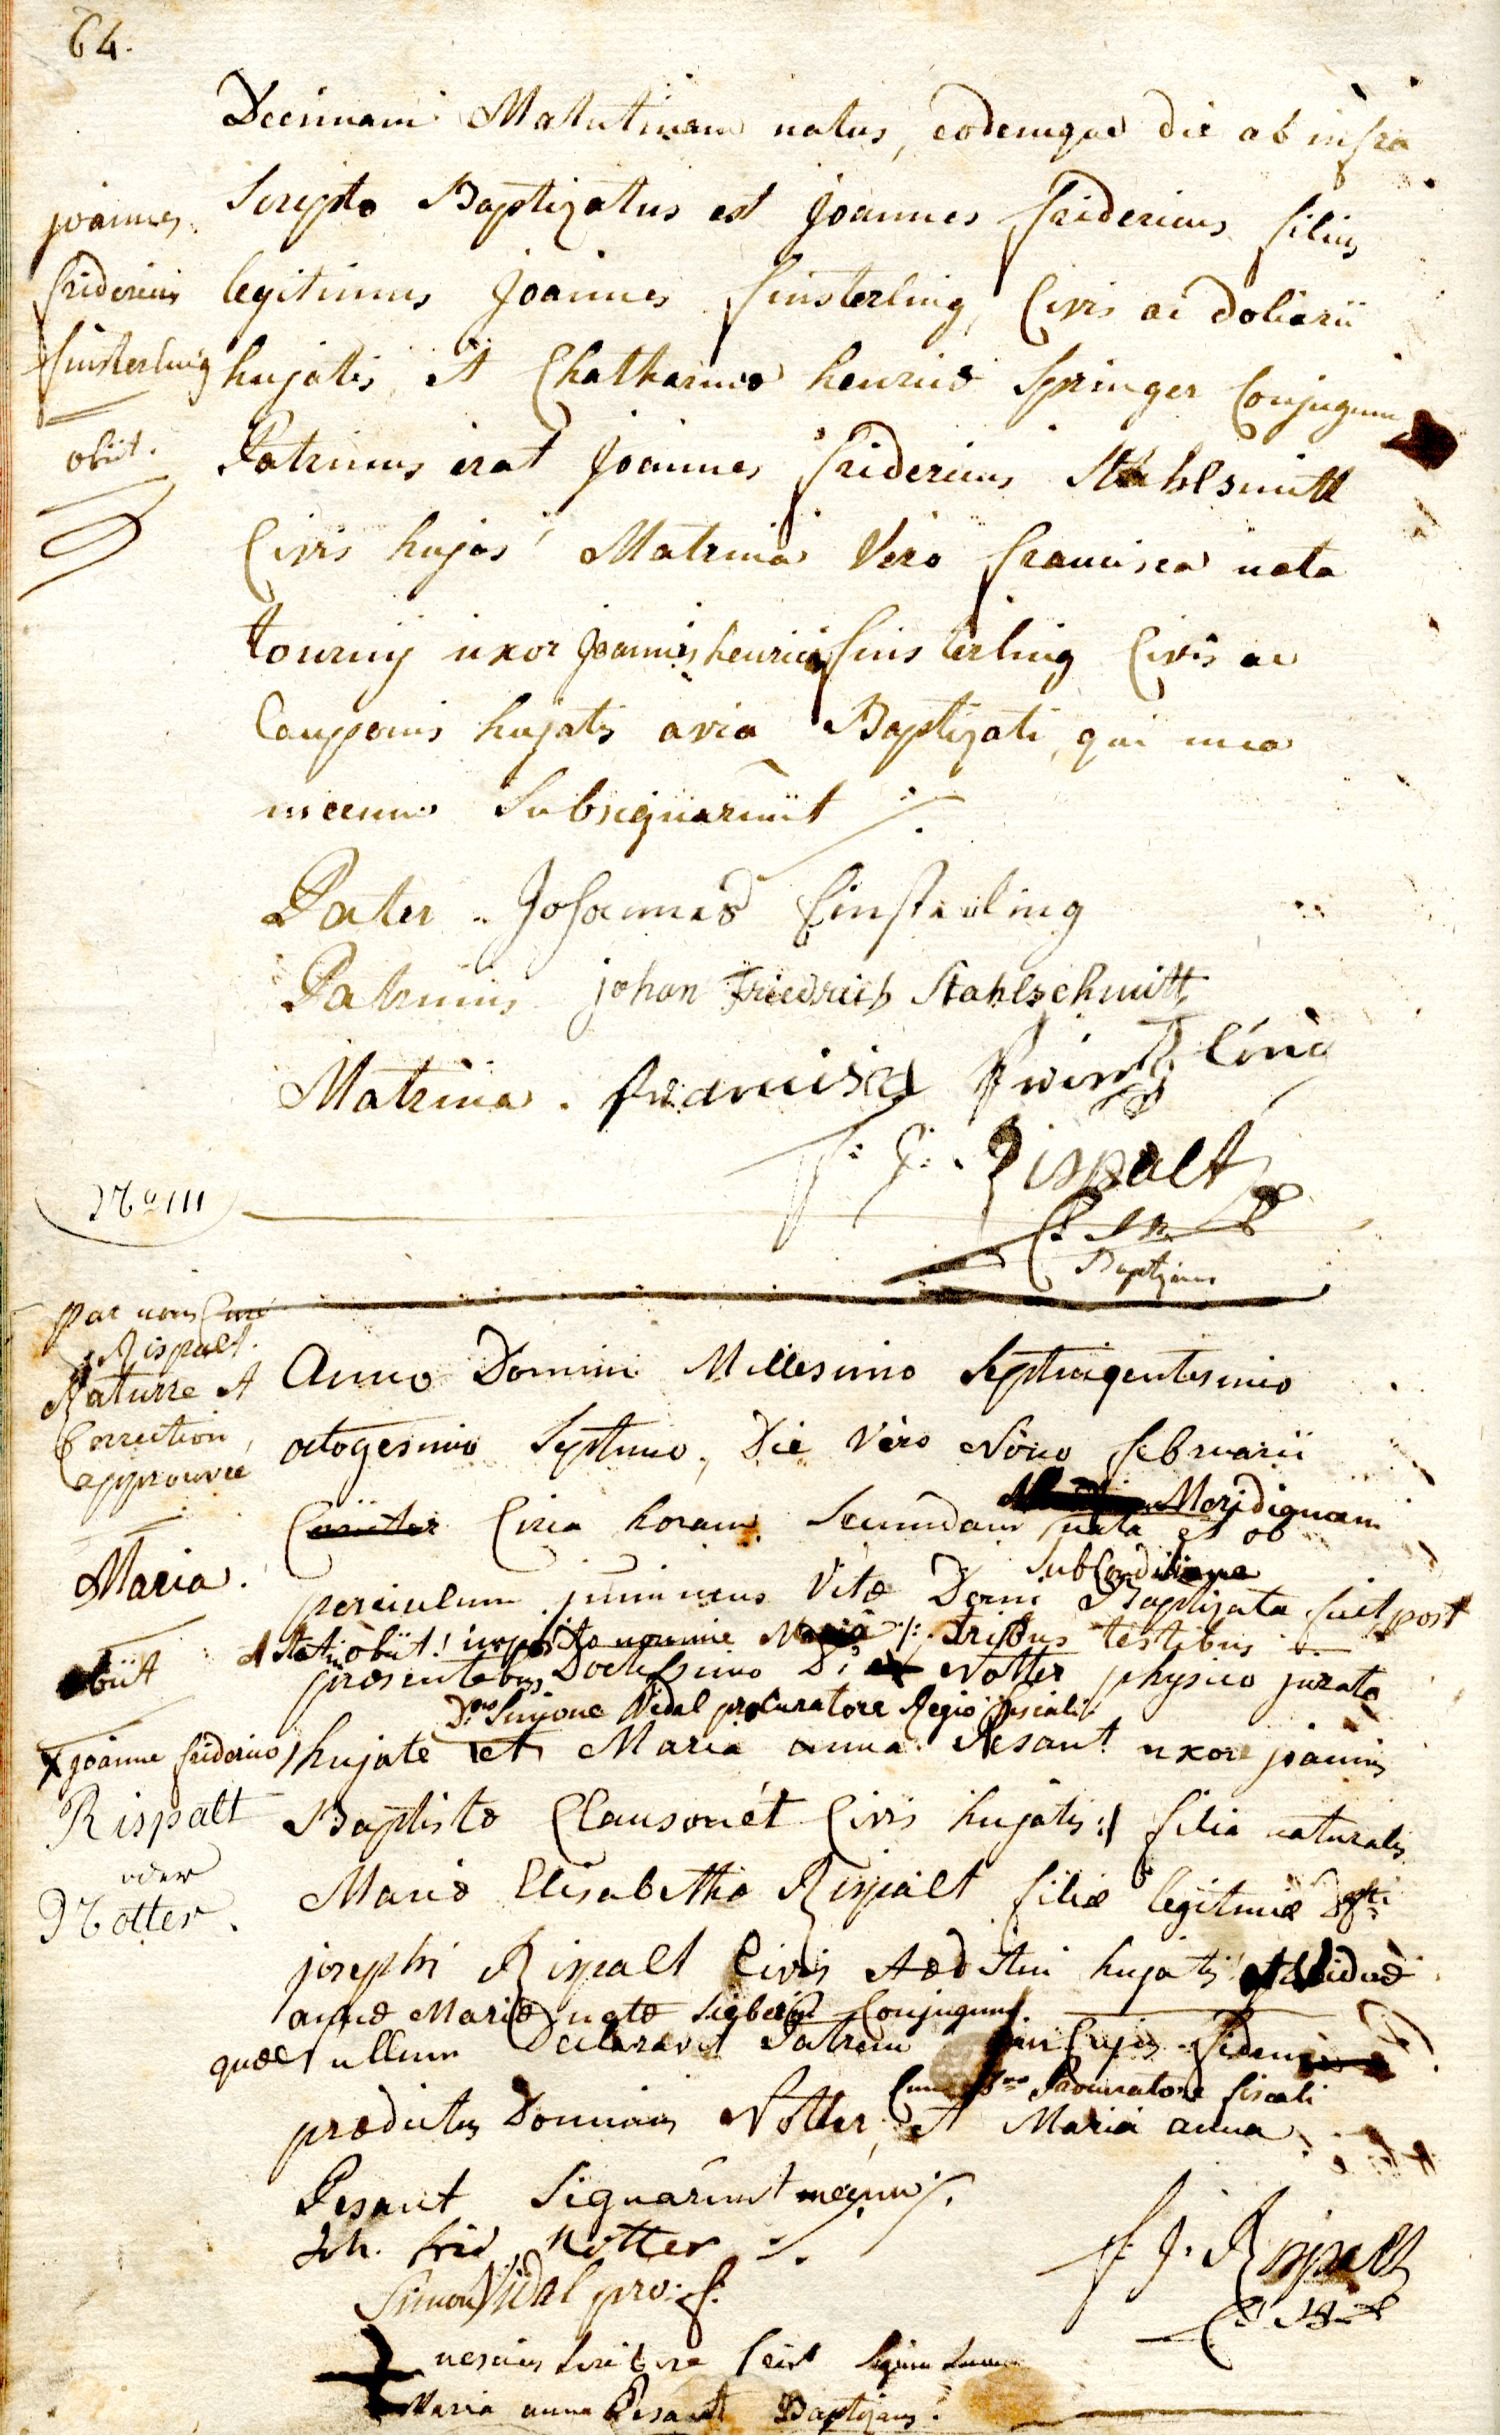 64.
Decimam Matutinam natus, eodemque die ab infra
scripto Baptizatus est Joannes fridericus filius
legitimus Joannes finsterling, Civis ac doliarii
hujatis, et Chatharinæ henricæ Springer Conjugum
Patrinus erat Joannes fridericus Stahlsmitt
Civis hujas, Matrina Vero francisca nata
tourny uxor Joannis henrici finsterling Civis ac
Cauponis hujatis avia Baptizati, qui mea
mecum Subsignarunt ./.
joannes
fridericus
finsterling
obiit.
Pater Johannes Finsterling
Patrinus johan Friedrich Stahlschmitt
Matrina. francisca
f: J: Rispalt
Baptizans
No 111
par nous Curé
Rispalt.
Rature et
Correction
approuvée
Maria.
obiit
x joanne friderico
Rispalt
oder
Notter.
Anno Domini Millesimo Septingentesimo
octogesimo Septimo, Die Vero Nono februarii
Meridianam
Circa horam Secundam nata et ob
Sub Conditione
periculum iminens Vitæ Domi Baptizata fuit, post
et statim obiit! imposito nomine Maria ./: tribus testibus
præsentibus Doctissimo D. Notter physico jurato
D.no Simone Vidal procuratore Regio fiscali
hujate et Maria anna Pesant uxore joannis
Baptistæ Clausonét Civis hujatis :/ filia naturalis
Mariæ Elisabethæ Rispalt filiæ legitimæ Dfti
josephi Rispalt Civis Aeditui hujatis et Viduæ
annæ Mariæ natæ Conjugum
quæ nullum Declaravit Patrem in Cujus fidem
Cum D.no Procuratore fiscali
prædictus Dominus Notter, et Maria anna
Pesant Signarunt mecum ./.
Joh. frid. Notter
Simon Vidal pro: f:
f: J: Rispalt
nescius scribere fecit signum suum
Maria anna Pesant Baptizans.